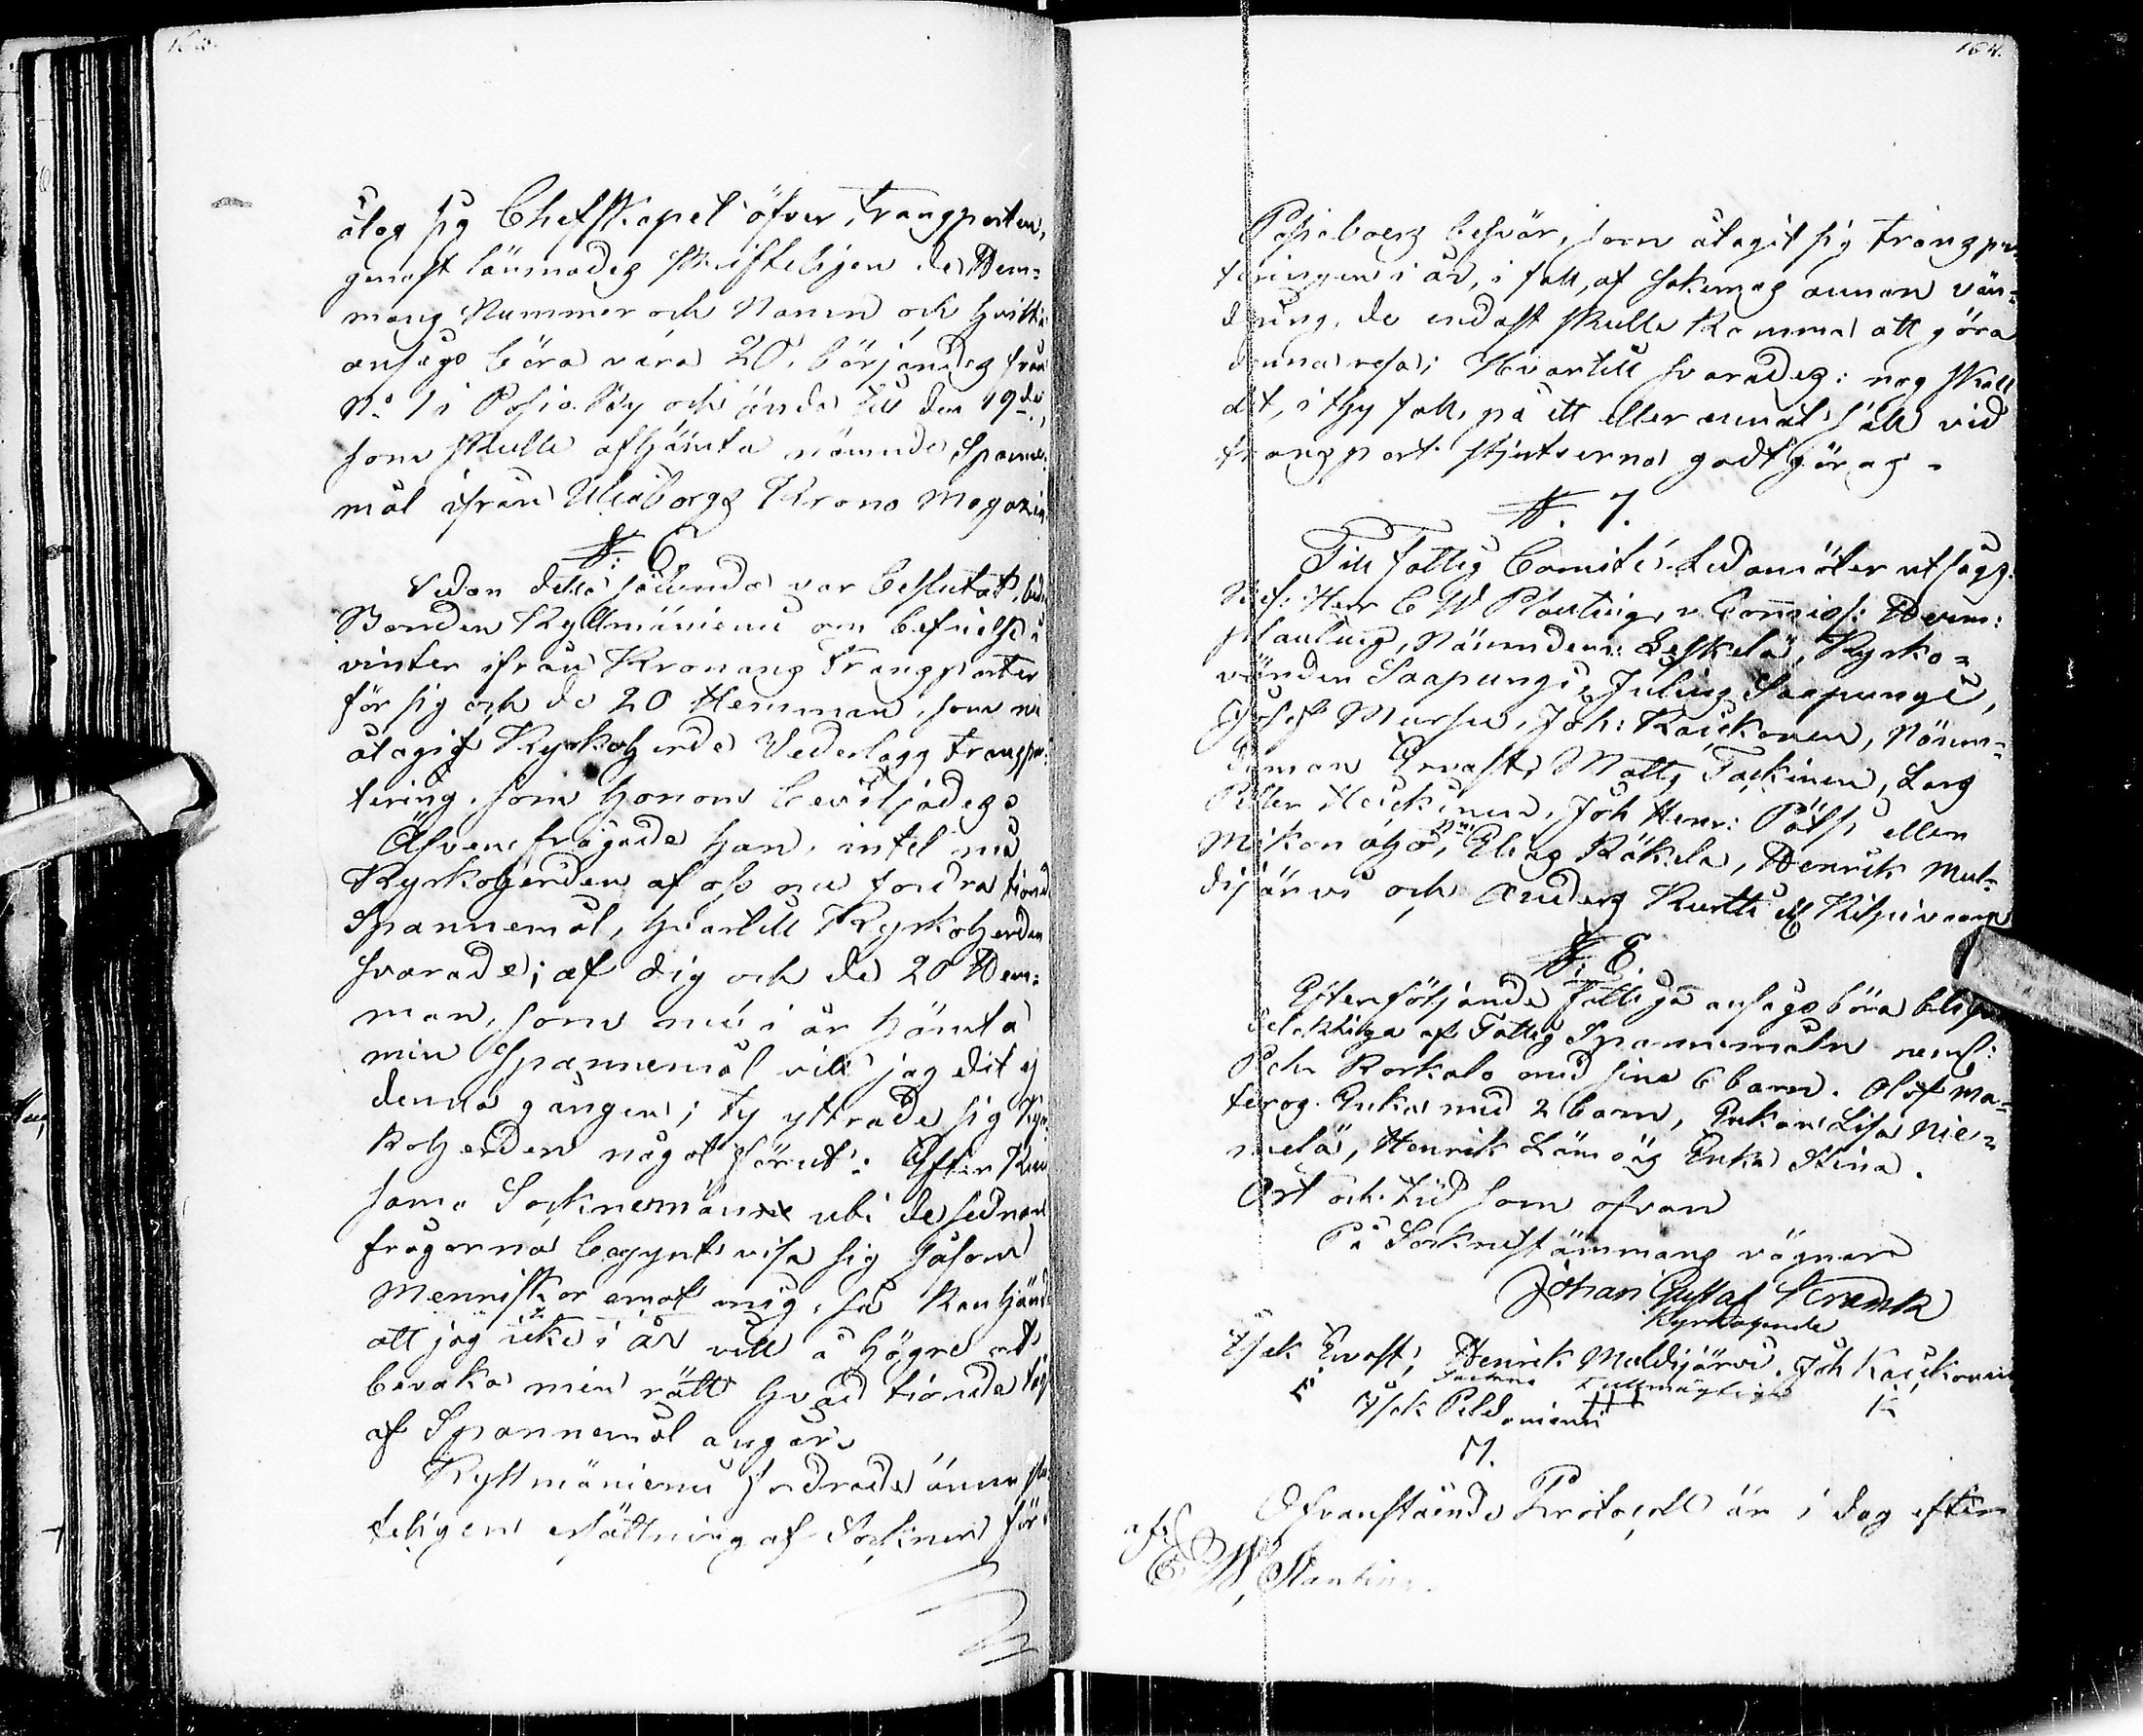 åtog sig Chefskapet öfver transporten,
genast lämnades skrifteligen de Hem-
mans Nummer och Namn och hvilka
ansågs böra vara 20, börjandes från
No 1 i Posio by och ända till den 19de,
som skulle afhämta nämnde Spanne-
mål ifrån Uleåborgs Krono Magazin
§. 6
Sedan detta sålunda var beslutat, bad
Bonden Kyllmäniemi om befrielse i
vinter ifrån Kronans Transporter
för sig och de 20 Hemman, som nu
åtagit Kyrkoherde Vederlags transpor-
tering, som honom beviljades.
Äfven frågade han, intet må
Kyrkoherden af oss nu fordra tionde
Spannemål, hvartill Kyrkoherden
svarade; af dig och de 20 Hem-
man, som nu i år hämta
min Spannemål vill jag det ej
denna gången; ty yttrade sig Kyr-
koherden något förut: Efter Kuu-
samo Socknemän uti de sednare
frågorna begynt visa sig såsom
Menniskor emot mig, så kan hända
att jag icke i år vill å högre ort
bevaka min rätt hvad tionde
af Spannemål angår.
Kyllmäniemi fordrade ännu
teligen ersättning af Socknen för
164.
Posioboers besvär, som åtagit sig transpor-
teringen i år, i fall, af sakernas annan vän-
dning, de endast skulle komma att göra
denna resa; Hvartill svarades: nog skall
det, i thy fall, på ett eller annat sätt vid
transport skjutserna godtgöras.
§. 7.
Till Fattig Comité Ledamöter utsågs
Herr C W Planting, v. Commiss: Herrm:
Planting, Nämndem: Leskelä, Kyrko-
värden Saapungi, Julius Saapungi,
Josef Mursu, Joh: Kaickonen, Näm-
deman Ervasti, Matts Tackinen, Lars
Petter Heickinen, Joh Henr: Pätsi eller
Mikonaho, Elias Käkelä, Henrik Mul-
dijärvi och Anders Kurtti
§. 8.
Efterföljande fattiga ansågs böra blifva
delaktiga af Fattig Spannemåln neml:
Pehr Korkala med sine 6 barn. Olof Ma-
teros Enka med 2 barn, Enkan Lisa Nie-
melä, Henrik Lämsäs Enka Stina.
Ort och tid som ofvan
På Sockenstämmans vägnar
Johan Gustaf
Kyrkoherde
Isak Ervasti, Henrik Muldijärvi, Joh Kaickonen
Isak Pildoniemi
M.
Ofvanstående Protocoll är i dag efter
af
C W, Planting.